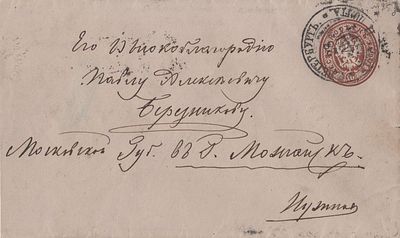 Его Высокоблагородію
Павлу Алексѣевичу
Березникову.
Московской Губ. въ Г. Можайскъ.